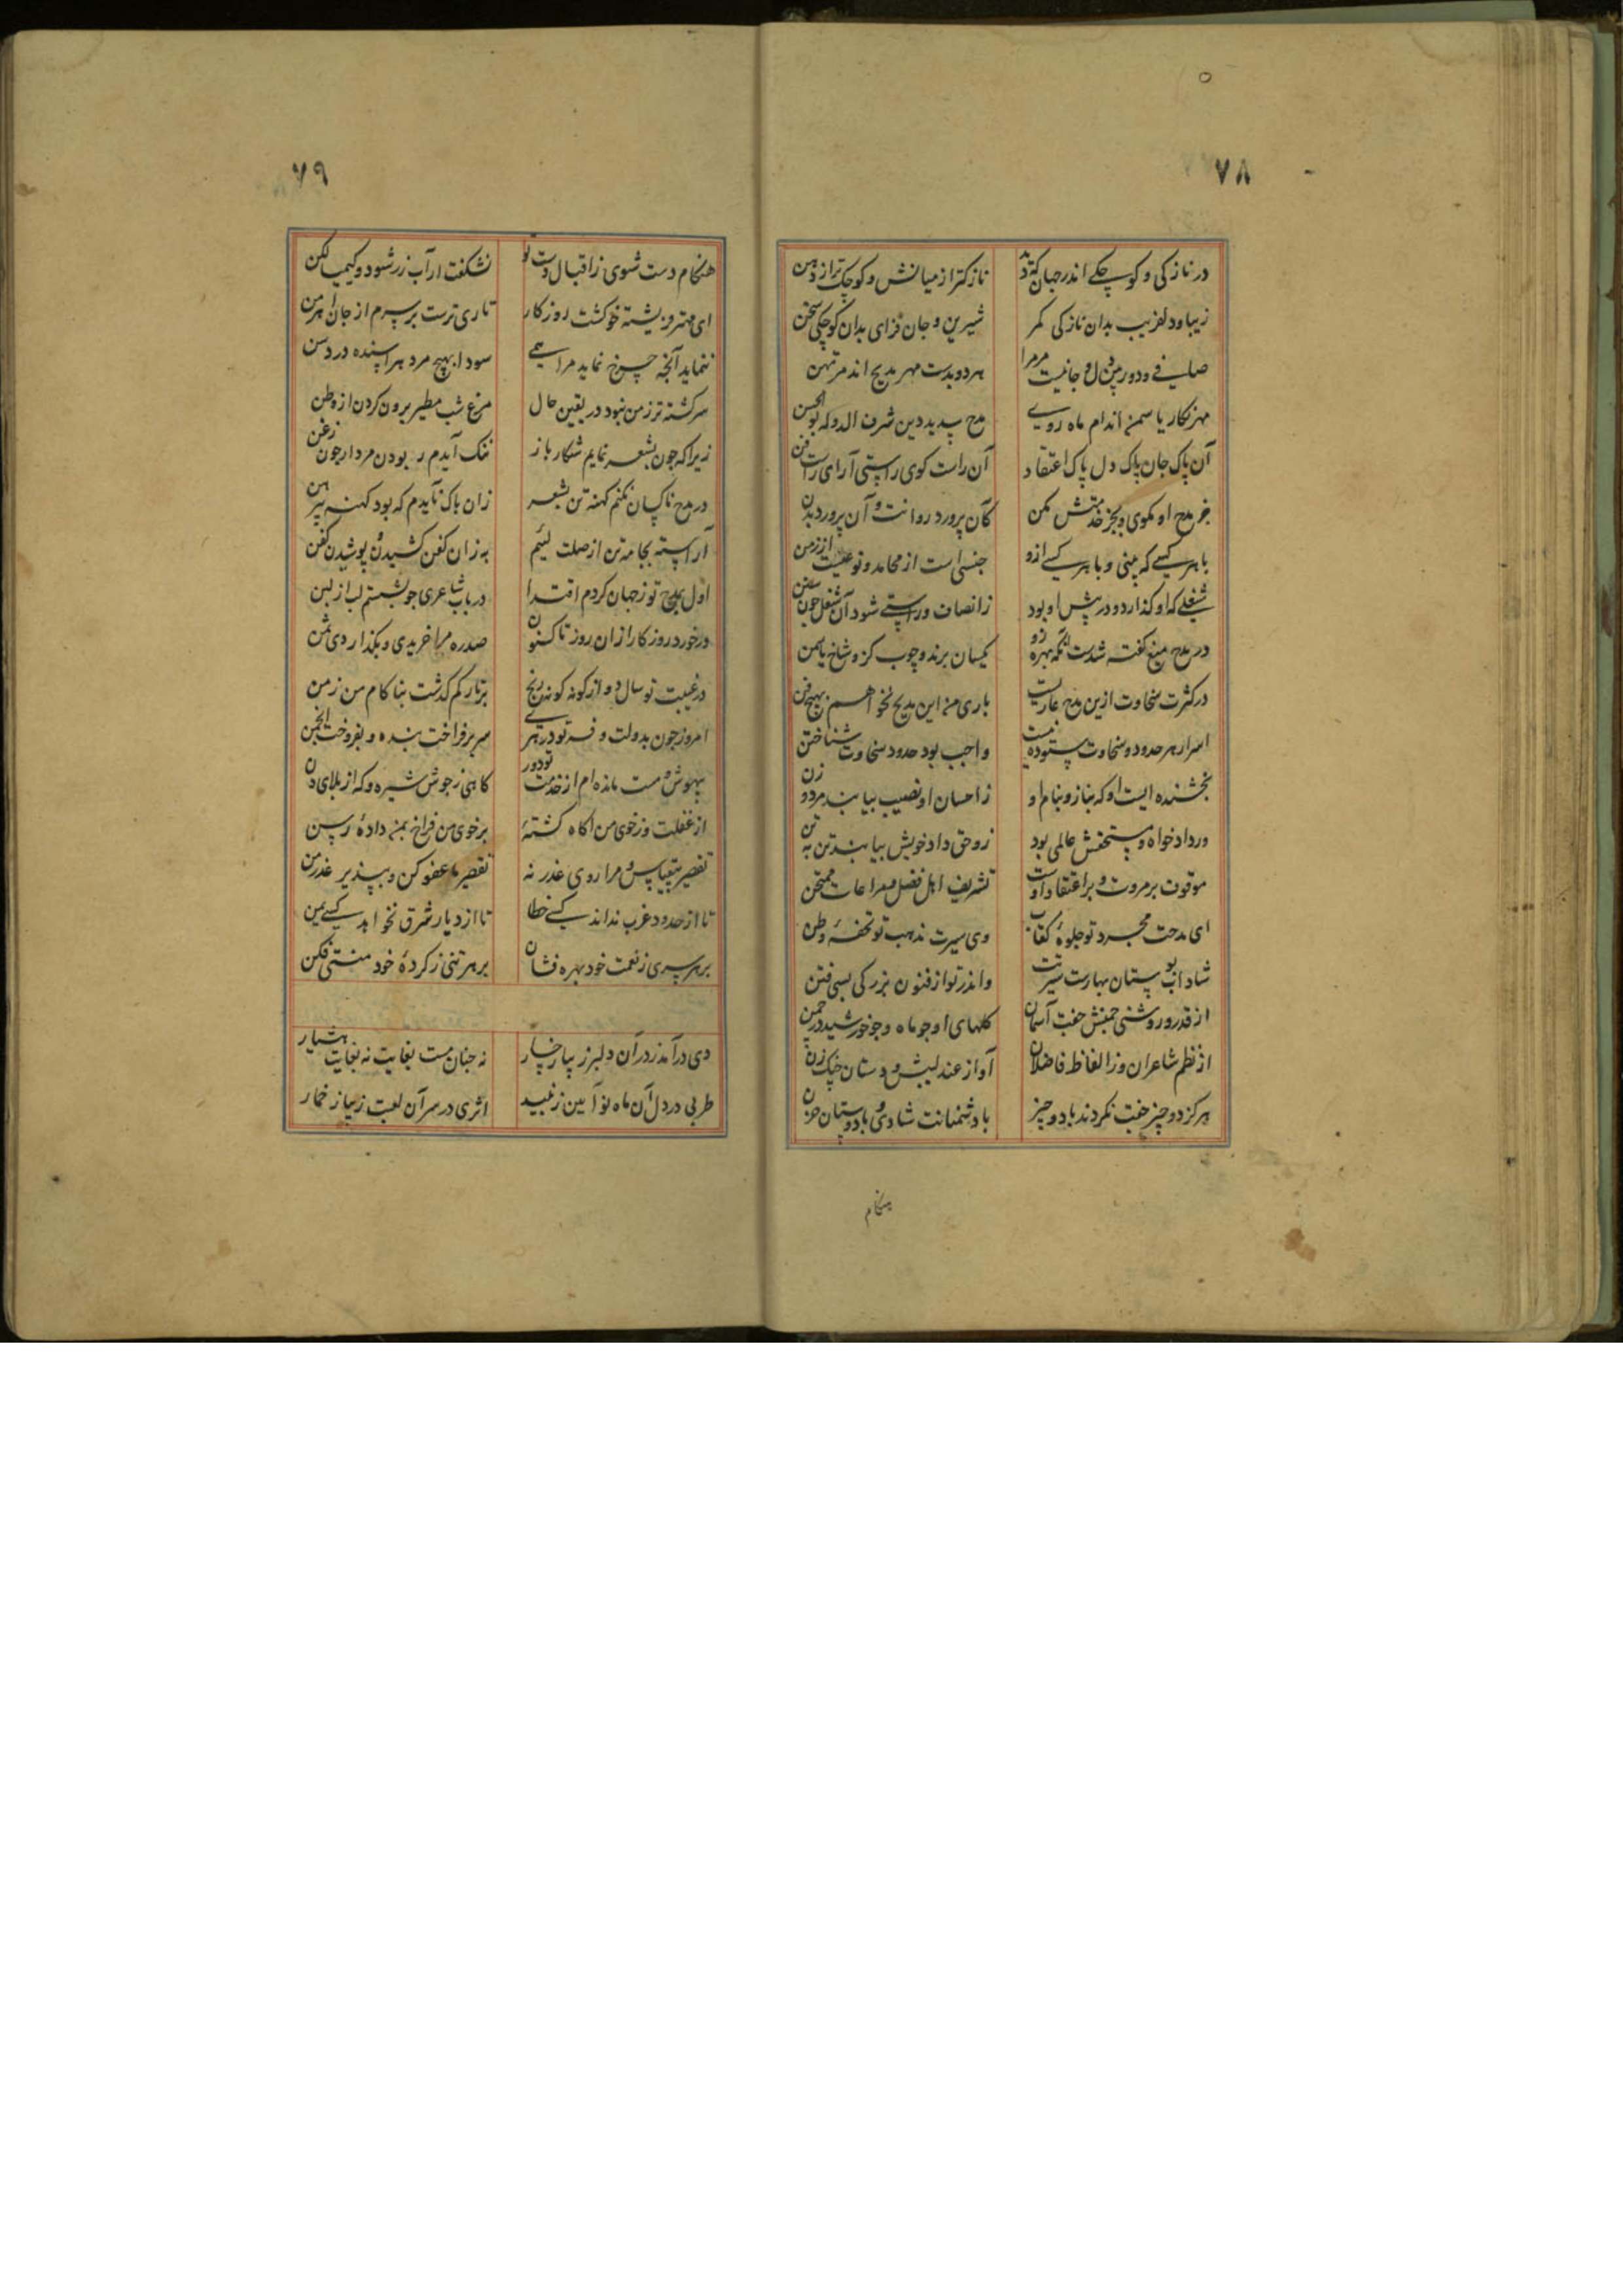 ٧٨
در نازکی و کوچکی اندر جهان که دید
نازکتر از میانش و کوچک تر از دهن
زیبا و دلفریب بدان نازکی کمر
شیرین و جان فزای بدان کوچکی سخن
صافی و دور بین دل و جانیست مر مرا
هر دو بدست مهر و مدیح اند مرتهن
مهر نکار یاسمن اندام ماه روی
مدح پدید دین شرف الدوله بوالحسن
آن پاک جان پاک دل پاک اعتقاد
آن راست کوی راستی آرای راست فن
جز مدح او مکوی و بجز خدمتش مکن
کان پرورد روانت و آن پرورد بدن
با هر کسی که بینی و با هر کسی ازو
جنسی است از محامد و نوعیست از زمن
شغلی که او کذارد و در پیش او بود
ز انصاف و راستی شود آن شغل چون سنن
در مدح میغ کفته شدست آنکه بهر ازو
یکسان برند چوب کز و شاخ یاسمن
در کثرت سخاوت ازین مدح عاریست
باری من این مدیح نخواهم بهیچ فن
اسرار هر حدود و سخاوت ستوده نیست
واجب بود حدود سخاوت شناختن
بخشنده ایست او که بناز و بنام او
ز احسان او نصیب بیابند مرد و زن
ور داد خواه و مستحقش عالمی بود
زو حق و داد خویش بیابند تن به تن
موقوف بر مروت و بر اعتقاد اوست
تشریف اهل فضل و مراعات ممتحن
ای مدحت مجرد تو جلوهٔ کتاب
وی سیرت مذهب تو تحفهٔ وطن
شاداب بوستان بهارست سیرتت
و اندر تو از فنون بزرکی بسی فتن
از قدر و روشنی چمنش جفت آسمان
کلهای او چو ماه و چو خورشید در چمن
از نظم شاعران وز الفاظ فاضلان
آواز عندلیبش و دستان چنک زن
هرکز دو چیز جفت نکردند با دو چیز
با دشمنانت شادی و با دوستان حزن
هنکام
٧٩
هنکام دست شوی ز اقبال دست تو
نشکفت ار آب زر شود و کیمیا لکن
ای مهتر فریشته خو کشت روزکار
تاری ترست بر سرم از جان اهرمن
ننماید آنچه چرخ نماید مرا همی
سودا بهیچ مرد هراسنده در دسن
سرکشته تر ز من نبود در یقین حال
مرغ شب مطیر برون کردن از وطن
زیرا که چون بشعر نمایم شکار باز
ننک آیدم ربودن مردار چون زغن
در مدح ناکسان نکنم کهنه تن بشعر
زان باک نایدم که بود کهنه پیرهن
آراسته بجامه تن از صلت لئیم
به زان کفن کشیدن و پوشیدن کفن
اول بمدح تو ز جهان کردم ابتدا
در باب شاعری چو بشستم لب از لبن
در خورد روزکار از آن روز تا کنون
صد ره مرا خریدی و بکذاردی ثمن
در غیبت تو سال دو از کونه کونه رنج
بر تارکم کذشت بناکام من زمن
امروز چون بدولت و فر تو در هری
سر برفراخت بنده و بفروخت انجمن
بیهوش و مست مانده ام از خدمت تو دور
کاهی ز جوش شیره و که از بلای دن
از غفلت وز خوی من آکاه کشتهٔ
بر خوی من فراخ بمن دادهٔ رسن
تقصیر بیقیاس و مرا روی عذر نه
تقصیر ما عفو کن و بپذیر عذر من
تا از حدود غرب نداند کسی خطا
تا از دیار شرق نخواهد کسی یمن
بر هر سری ز نعمت خود بهره فشان
بر هر تنی ز کردهٔ خود منتی فکن
دی درآمد ز در آن دلبر زیبا رخسار
نه چنان مست بغایت نه بغایت هشیار
طربی در دل آن ماه نو آیین ز نبید
اثری در سر آن لعبت زیبا ز خمار